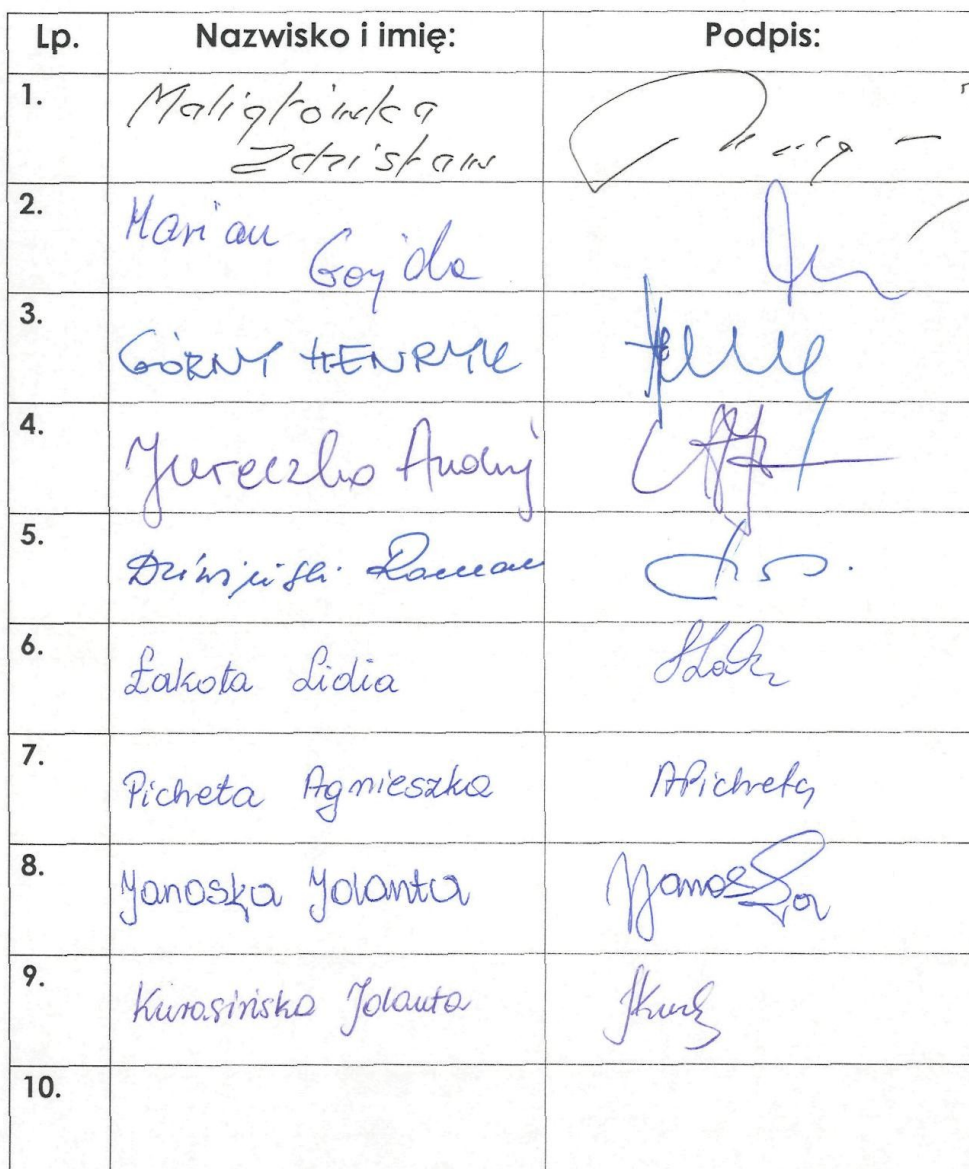 Lp. Nazwisko i imię: Podpis:
1. Maligłówka
Zdzisław
2. Marian
Gojda
3. GÓRNY HENRYK
4. Jureczko Andrzej
5. Roman
6. Łakota Lidia
7. Picheta Agnieszka APicheta
8. Janoszka Jolanta JJanoszka
9. Kurasińska Jolanta
10.